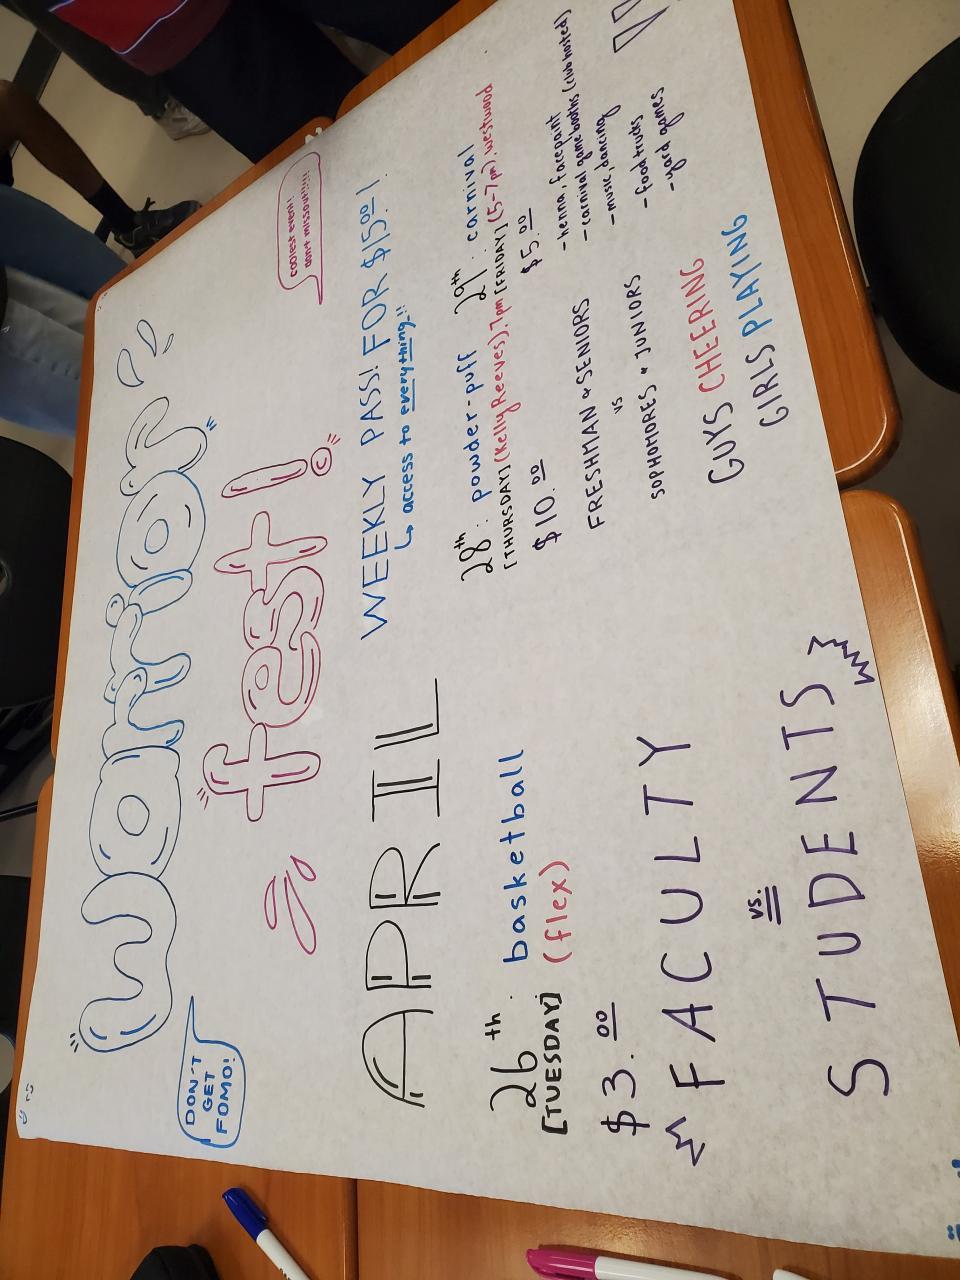 warrior
fest!
DON'T
GET
FOMO!
coolest event!
don't miss out!!!!!
APRIL
WEEKLY PASS! FOR $15.00!
↳ access to everything!!
26th: basketball
[TUESDAY] (flex)
$3.00
FACULTY
vs.
STUDENTS
28th: powder-puff
[THURSDAY] (Kelly Reeves), 7pm
$10.00
FRESHMAN & SENIORS
vs
SOPHOMORES & JUNIORS
GUYS CHEERING
GIRLS PLAYING
29th: carnival
[FRIDAY] (5-7pm), westwood
$5.00
- henna, facepaint
- carnival game booths (club hosted)
- music, dancing
- food trucks
- yard games